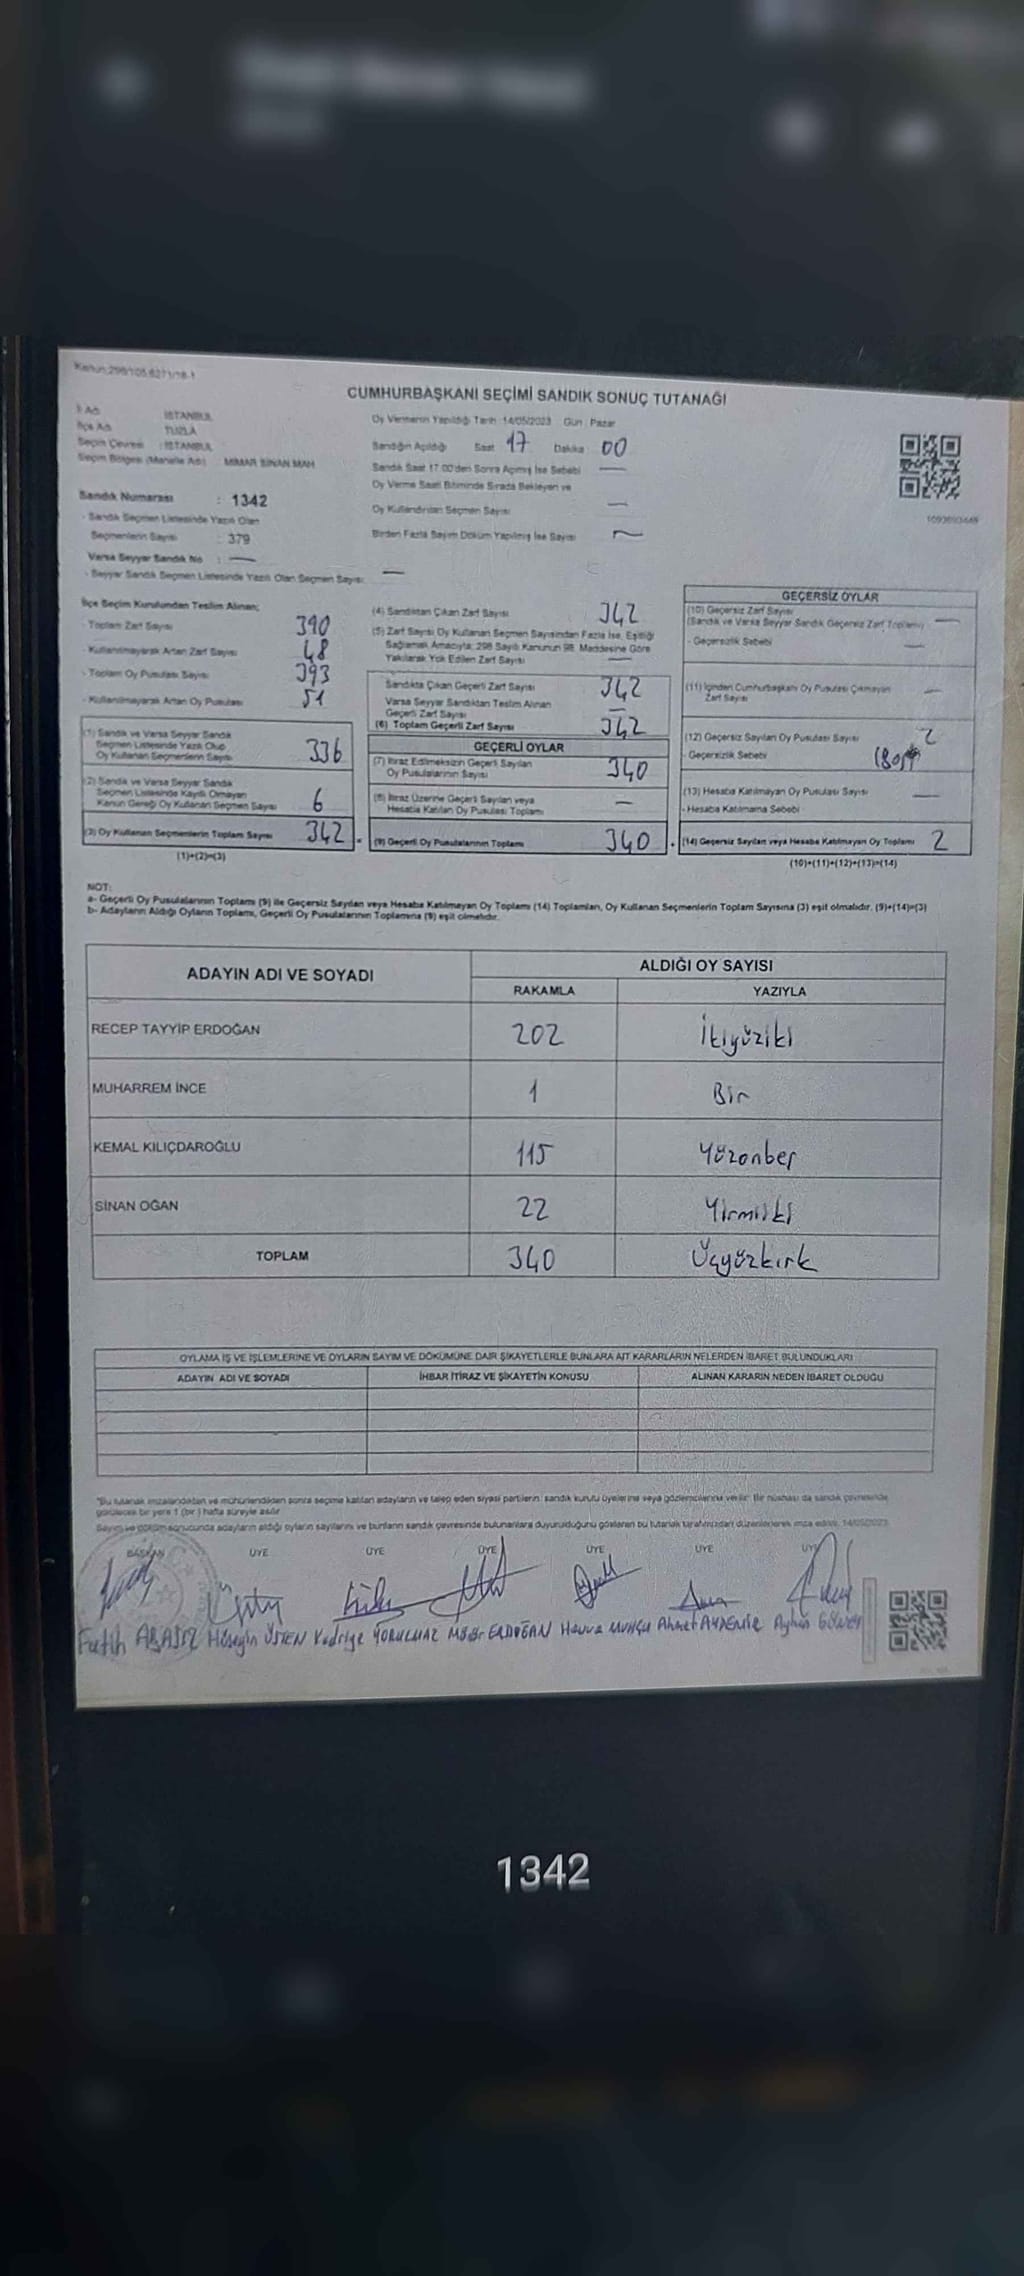 Kanun:298/105,6271/18-1
CUMHURBAŞKANI SEÇİMİ SANDIK SONUÇ TUTANAĞI
İl Adı İSTANBUL
İlçe Adı TUZLA
Seçim Çevresi : İSTANBUL
Seçim Bölgesi (Mahalle Adı) : MİMAR SİNAN MAH
Oy Vermenin Yapıldığı Tarih :14/05/2023 Gün : Pazar
Sandığın Açıldığı Saat 17 Dakika 00
Sandık Saat 17:00'den Sonra Açılmış İse Sebebi —
Oy Verme Saati Bitiminde Sırada Bekleyen ve
Oy Kullandırılan Seçmen Sayısı —
Birden Fazla Sayım Döküm Yapılmış İse Sayısı —
Sandık Numarası : 1342
- Sandık Seçmen Listesinde Yazılı Olan
Seçmenlerin Sayısı : 379
Varsa Seyyar Sandık No : —
- Seyyar Sandık Seçmen Listesinde Yazılı Olan Seçmen Sayısı: —
İlçe Seçim Kurulundan Teslim Alınan;
- Toplam Zarf Sayısı 390
- Kullanılmayarak Artan Zarf Sayısı 48
- Toplam Oy Pusulası Sayısı 393
- Kullanılmayarak Artan Oy Pusulası 51
(1) Sandık ve Varsa Seyyar Sandık
Seçmen Listesinde Yazılı Olup
Oy Kullanan Seçmenlerin Sayısı 336
(2) Sandık ve Varsa Seyyar Sandık
Seçmen Listesinde Kayıtlı Olmayan
Kanun Gereği Oy Kullanan Seçmen Sayısı 6
(3) Oy Kullanan Seçmenlerin Toplam Sayısı 342
(1)+(2)=(3)
(4) Sandıktan Çıkan Zarf Sayısı 342
(5) Zarf Sayısı Oy Kullanan Seçmen Sayısından Fazla İse, Eşitliği
Sağlamak Amacıyla; 298 Sayılı Kanunun 98. Maddesine Göre
Yakılarak Yok Edilen Zarf Sayısı —
Sandıkta Çıkan Geçerli Zarf Sayısı 342
Varsa Seyyar Sandıktan Teslim Alınan
Geçerli Zarf Sayısı —
(6) Toplam Geçerli Zarf Sayısı 342
GEÇERLİ OYLAR
(7) İtiraz Edilmeksizin Geçerli Sayılan
Oy Pusulalarının Sayısı 340
(8) İtiraz Üzerine Geçerli Sayılan veya
Hesaba Katılan Oy Pusulası Toplamı —
(9) Geçerli Oy Pusulalarının Toplamı 340
GEÇERSİZ OYLAR
(10) Geçersiz Zarf Sayısı
(Sandık ve Varsa Seyyar Sandık Geçersiz Zarf Toplamı) —
- Geçersizlik Sebebi —
(11) İçinden Cumhurbaşkanı Oy Pusulası Çıkmayan
Zarf Sayısı —
(12) Geçersiz Sayılan Oy Pusulası Sayısı 2
- Geçersizlik Sebebi
(13) Hesaba Katılmayan Oy Pusulası Sayısı —
- Hesaba Katılmama Sebebi
(14) Geçersiz Sayılan veya Hesaba Katılmayan Oy Toplamı 2
(10)+(11)+(12)+(13)=(14)
NOT:
a- Geçerli Oy Pusulalarının Toplamı (9) ile Geçersiz Sayılan veya Hesaba Katılmayan Oy Toplamı (14) Toplamları, Oy Kullanan Seçmenlerin Toplam Sayısına (3) eşit olmalıdır. (9)+(14)=(3)
b- Adayların Aldığı Oyların Toplamı, Geçerli Oy Pusulalarının Toplamına (9) eşit olmalıdır.
ADAYIN ADI VE SOYADI ALDIĞI OY SAYISI
RAKAMLA YAZIYLA
RECEP TAYYİP ERDOĞAN 202 İkiyüziki
MUHARREM İNCE 1 Bir
KEMAL KILIÇDAROĞLU 115 Yüzonbeş
SİNAN OĞAN 22 Yirmiiki
TOPLAM 340 Üçyüzkırk
OYLAMA İŞ VE İŞLEMLERİNE VE OYLARIN SAYIM VE DÖKÜMÜNE DAİR ŞİKAYETLERLE BUNLARA AİT KARARLARIN NELERDEN İBARET BULUNDUKLARI
ADAYIN ADI VE SOYADI İHBAR İTİRAZ VE ŞİKAYETİN KONUSU ALINAN KARARIN NEDEN İBARET OLDUĞU
*Bu tutanak imzalandıktan ve mühürlendikten sonra seçime katılan adayların ve talep eden siyasi partilerin sandık kurulu üyelerine veya gözlemcilerine verilir. Bir nüshası da sandık çevresinde
görülecek bir yere 1 (bir) hafta süreyle asılır
Sayım ve döküm sonucunda adayların aldığı oyların sayılarını ve bunların sandık çevresinde bulunanlara duyurulduğunu gösteren bu tutanak tarafımızdan düzenlenerek imza edildi. 14/05/2023
BAŞKAN ÜYE ÜYE ÜYE ÜYE ÜYE ÜYE
Fatih Hüseyin Kadriye YORULMAZ ERDOĞAN Havva Ahmet AYDEMİR Ayhan
1342